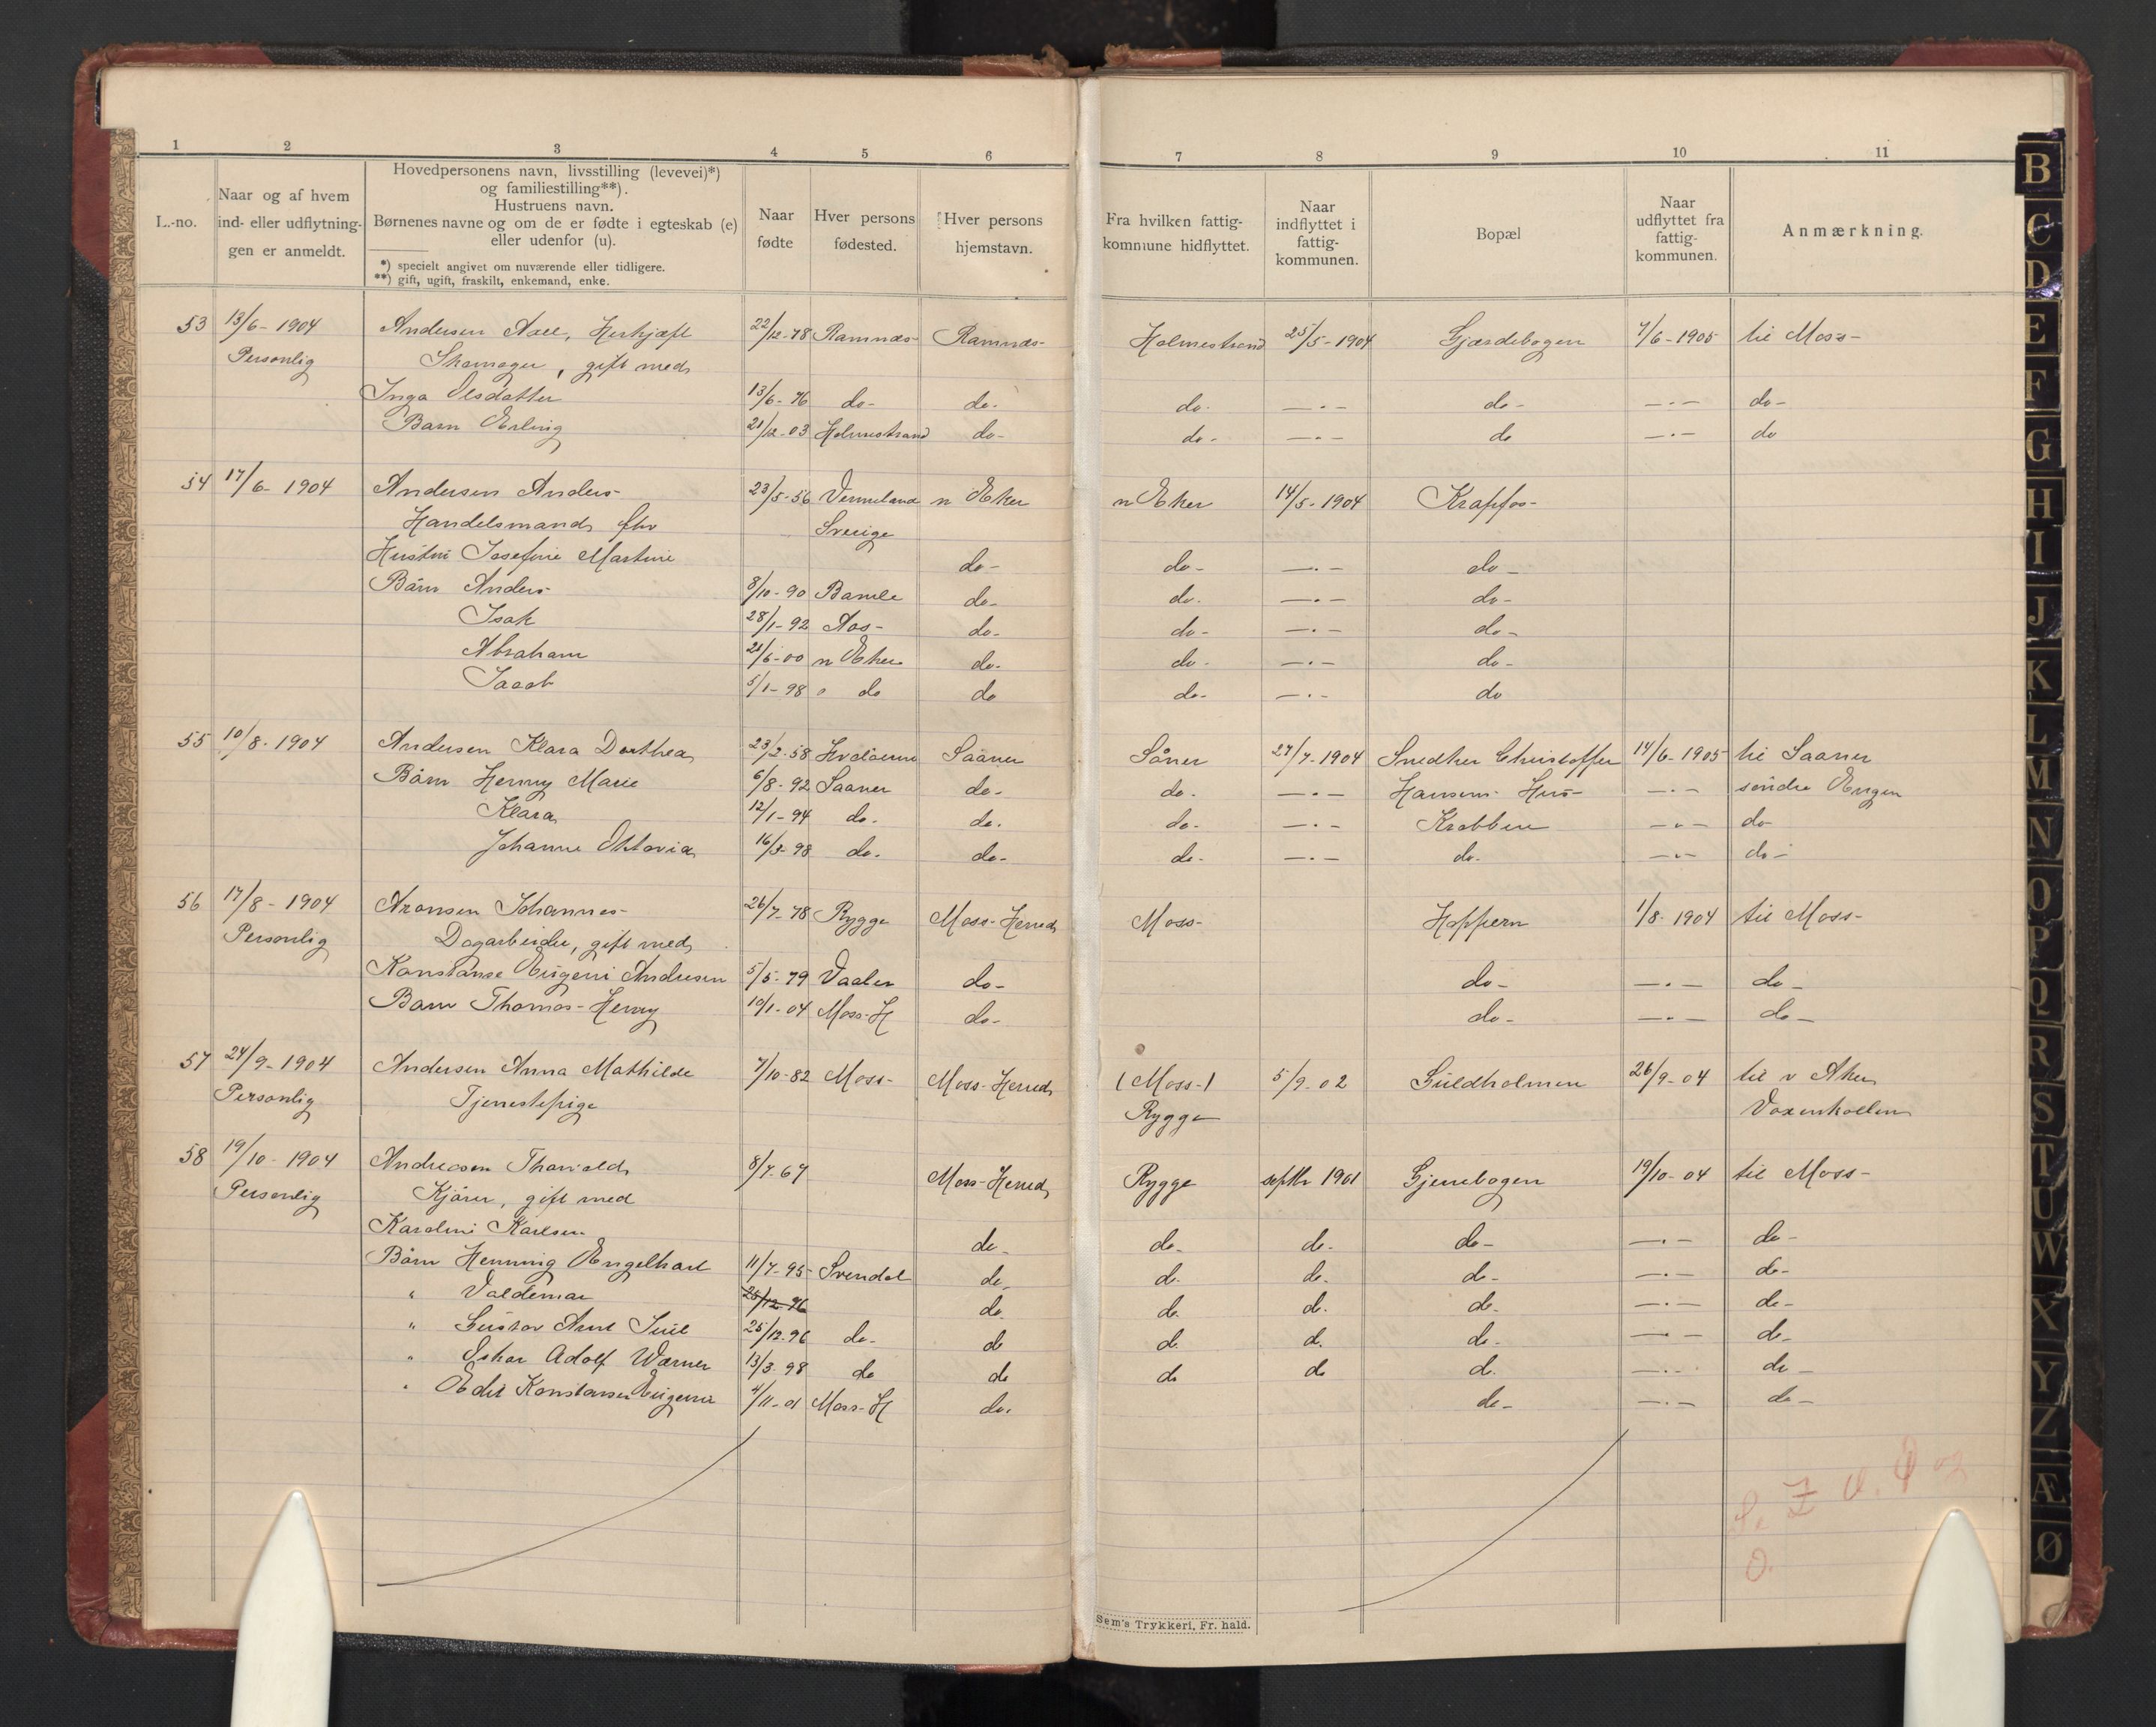 1 2 3 4 5 6 7 8 9 10 11
L.-no.
Naar og af hvem ind- eller udflytningen er anmeldt.
Hovedpersonens navn, livsstilling (levevei)*)
og familiestilling**).
Hustruens navn.
Børnenes navne og om de er fødte i egteskab (e)
eller udenfor (u).
*) specielt angivet om nuværende eller tidligere.
**) gift, ugift, fraskilt, enkemand, enke.
Naar fødte
Hver persons fødested.
Hver persons hjemstavn.
Fra hvilken fattigkommune hidflyttet.
Naar indflyttet i fattigkommunen.
Bopæl
Naar udflyttet fra fattigkommunen.
Anmærkning.
53 13/6- 1904 Andersen Axel, 22/12-78 Ramnæs- Ramnæs- Holmestrand 25/5-1904 Gjærdebogen 7/6-1905 til Moss-
Personlig Skomager, gift med
Inga Olsdatter 13/6-76 do- do- do- —·— do- —·— do-
Barn Erling 21/12-03 Holmestrand do- do- —·— do —·— do
54 17/6- 1904 Andersen Anders- 23/5-56 Vermeland n Eker n Eker 14/5-1904 Krapfos-
Handelsmand fhv Sverige
Hustru Josefine Martine do- do- —·— do-
Børn Anders- 8/10-90 Bamle do- do- —·— do-
Isak 28/1-92 Aas- do- do- —·— do-
Abraham 21/6-00 n Eker do- do- —·— do-
Jacob 5/1-98 do do do- —·— do
55 10/8-1904 Andersen Klara Dorthea 23/2-58 Hvaløerne Saaner Såner 27/7-1904 Snedker Christoffer 14/6-1905 til Saaner
Børn Henny Marie 6/8-92 Saaner do- do- —·— Hansens Hus- —·— søndre Engen
Klara 12/1-94 do- do- do- —·— Krabben —·— do-
Johanne Oktavia 16/3-98 do- do- do- —·— do- —·— do-
56 17/8- 1904 Aronsen Johannes- 26/7-78 Rygge Moss-Herred Moss- Hoppern 1/8-1904 til Moss-
Personlig Dagarbeider, gift med
Konstanse Eugeni Andresen 5/5-79 Vaaler do- do- —·— do-
Barn Thomas-Henry 10/1-04 Moss-H do- do- —·— do-
57 24/9-1904 Andersen Anna Mathilde 7/10-82 Moss- Moss-Herred (Moss-) 5/9-02 Guldholmen 26/9-04 til v Aker
Personlig Tjenestepige Rygge Voxenkollen
58 19/10-1904 Andreasen Thorvald 8/7-67 Moss-Herred Rygge septbr 1901 Gjerrebogen 19/10-04 til Moss-
Personlig Kjører, gift med
Karoline Karlsen do- do- do- do- —·— do-
Børn Henning Engelhart 11/7-95 Svendal do- do- do- do- —·— do-
" Valdemar 25/12-96 do do. do. do- —·— do-
" Gustav Arnt Juul 25/12-96 do- do do. do. do- —·— do-
" Oskar Adolf Warner 13/3-98 do do do do do. —·— do-
" Edit Konstanse Eugenie 4/11-01 Moss-H do. do- —·— do-
Sem's Trykkeri, Fr. hald.
B
C
D
E
F
G
H
I
J
K
L
M
N
O
P
Q
R
S
T
U
W
X
Y
Z
Æ
Ø